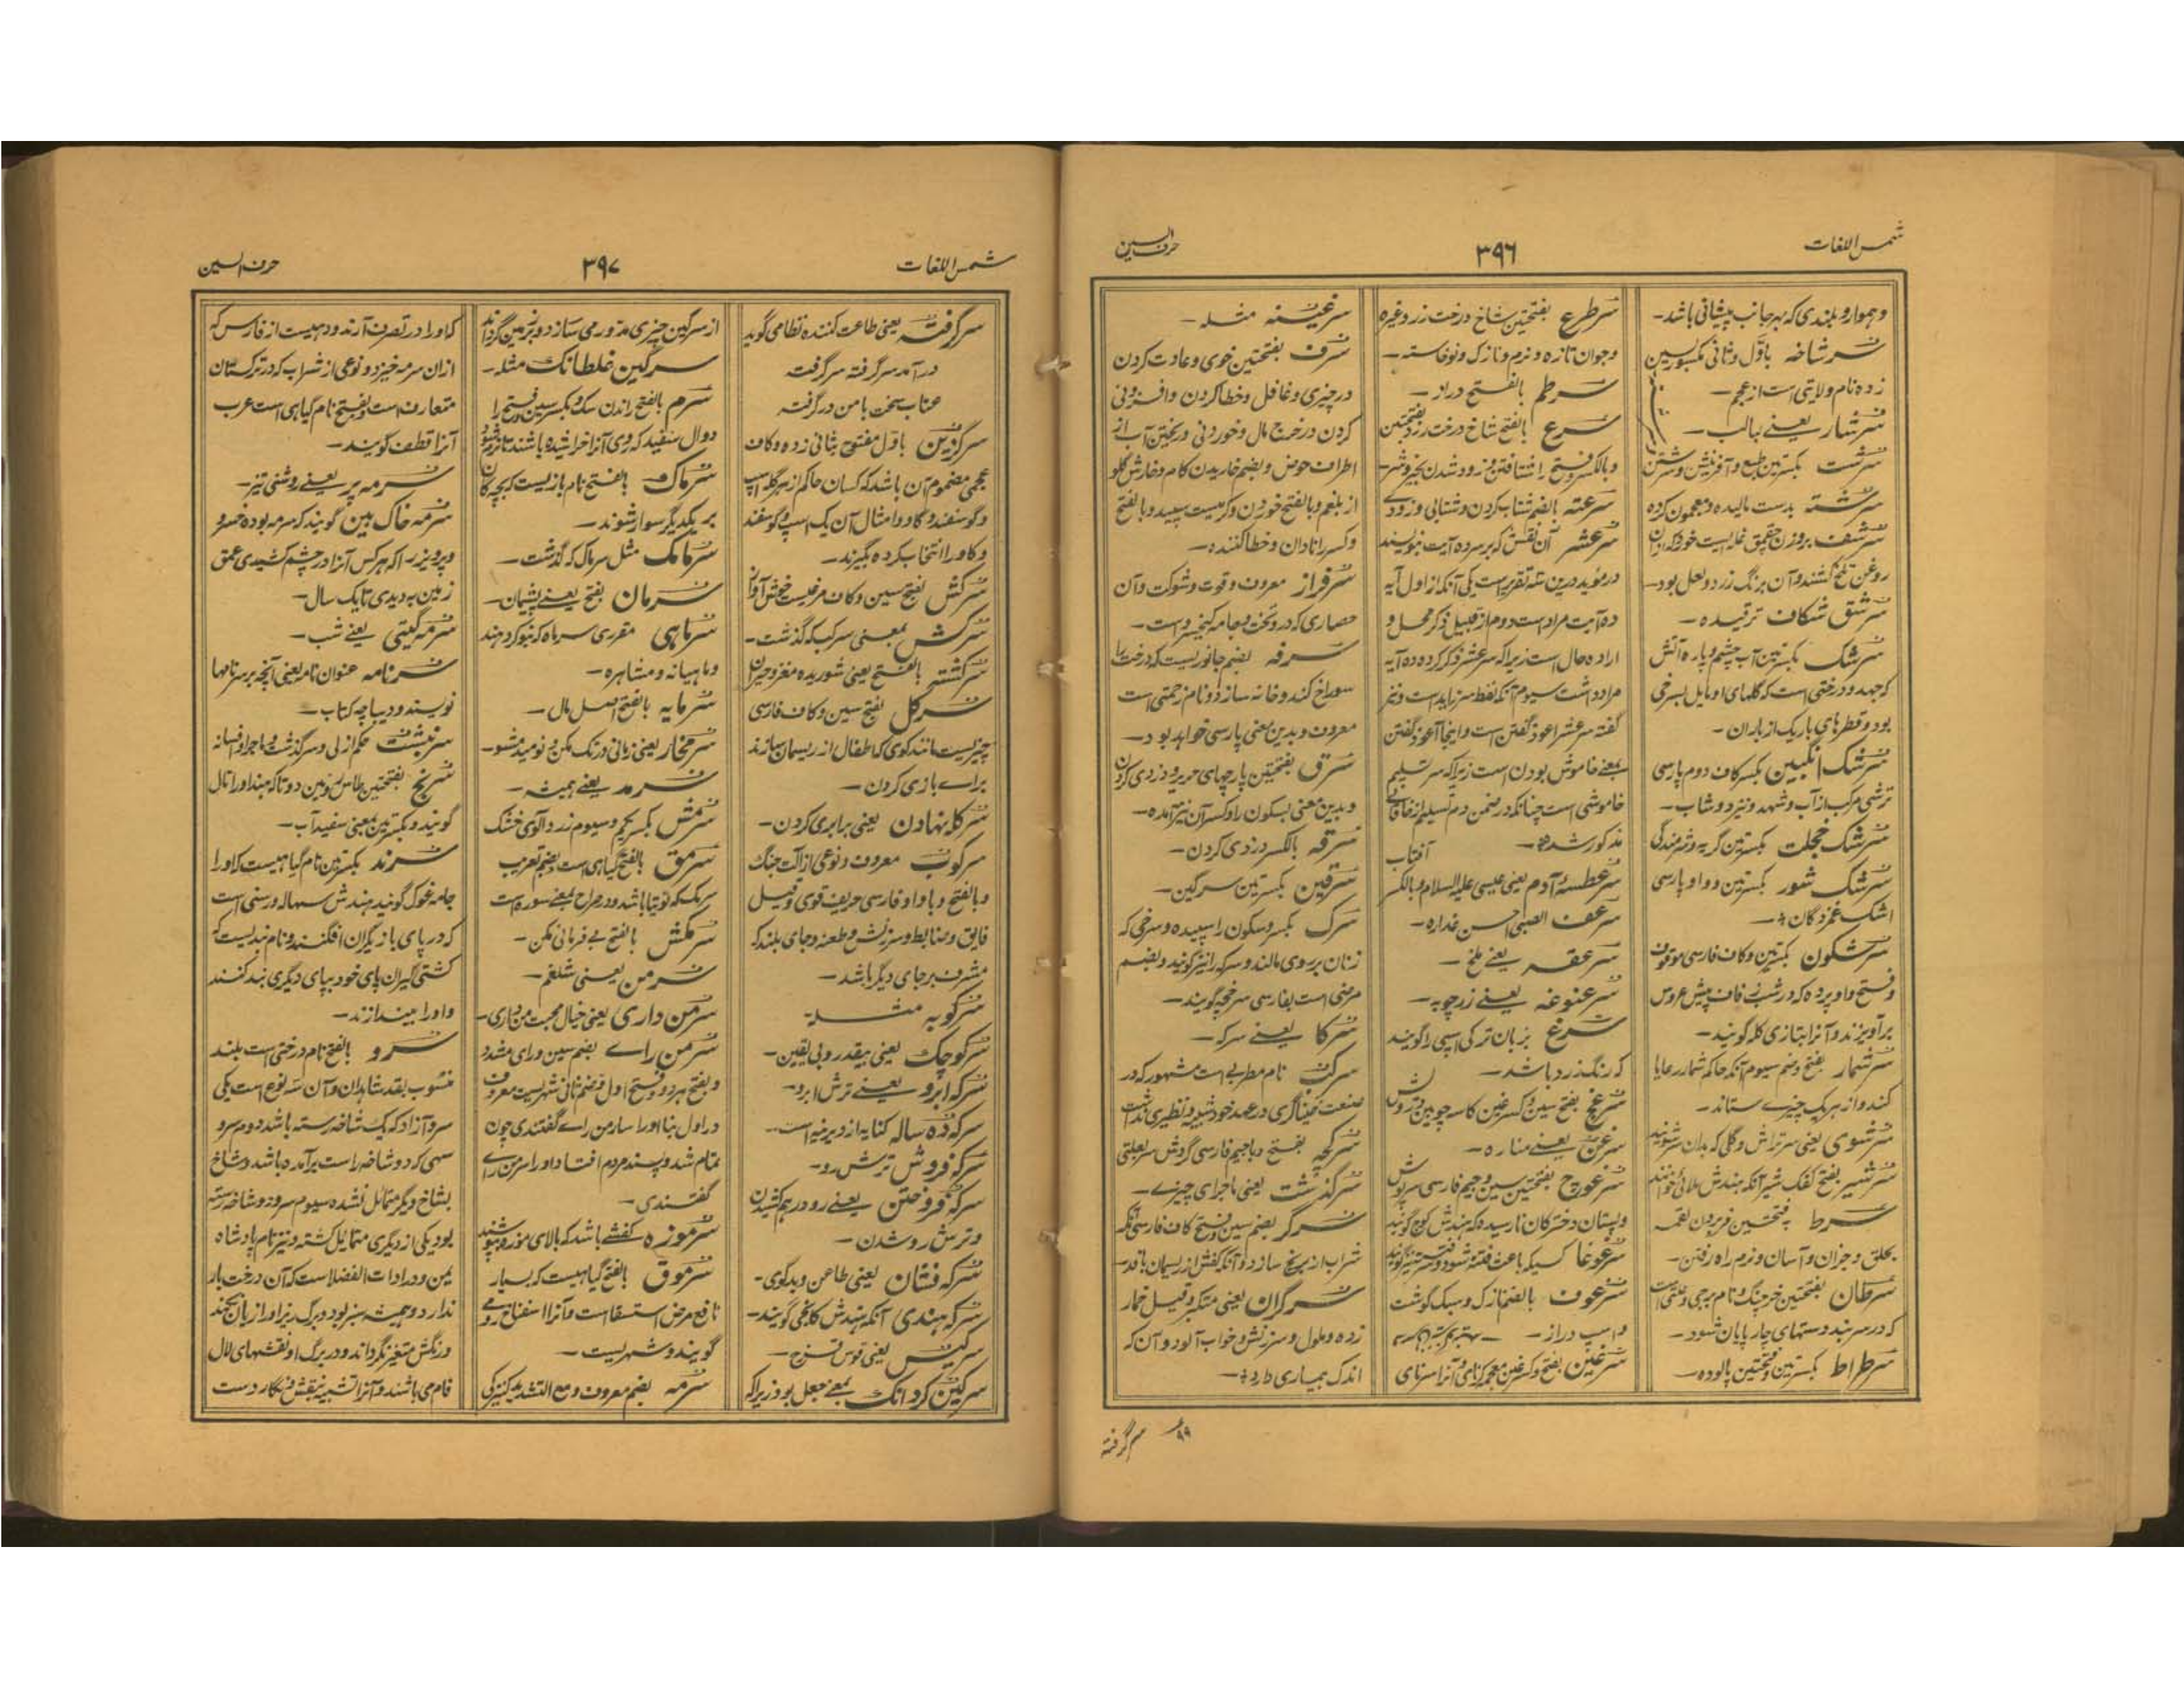 شمس اللغات
۳۹۶
حرف السین
و هموار و بلندی که بهر جانب پیشانی باشد-
سرشاخه باول و ثانی مکسور بسین
زده نام ولایتی است از عجم-
سرشار یعنے بالب-
سرشت بکسرتین طبع و آفرینش و سرشتن
سرشته بدست مالیده و معجون کرده
سرشف بروزن
روغن تلخ کشند و آن برنگ زرد و لعل بود-
سرشق شگاف ترقیده-
سرشک بکسرتین آب چشم و پاره آتش
که جهد و درختی است که گلهای او مایل بسرخی
بود و قطرهای باریک از باران-
سرشک انگبین بکسر کاف دوم پارسی
ترشی مرکب از آب و شهد و نیز دوشاب-
سرشک خجلت بکسرتین گریه و شرمندگی
سرشک شور بکسرتین و واو پارسی
اشک غمزدگان-
سرشکون بکسرتین و کاف فارسی موقوف
و فتح واو پرده که در شب زفاف پیش عروس
برآویزند و آنرا بتازی کله گویند-
سرشمار بفتح و ضم سیوم آنکه حاکم شمار رعایا
کند و از هر یک چیزے ستاند-
سرشوی یعنی سرتراش و گلی که بدان سر شویند
سرشیر بفتح کفک شیر آنکه هندش ملائی خوانند
سرط بفتحتین فرو بردن لقمه
بحلق و جز آن و آسان و نرم راه رفتن-
سرطان بفتحتین خرچنگ و نام برجی و علتی است
که در سر بند دستهای چارپایان شود-
سرطراط بکسرتین و فتحتین پالوده-
سرطرع بفتحتین شاخ درخت رز و غیره
و جوان تازه و نرم و نازک و نوخاسته-
سرطم بالفتح دراز-
سرع بالفتح شاخ درخت رز و بفتحتین
و بالکسر و فتح را شتافتن و زود شدن
سرعته بالضم شتاب کردن و شتابی و زودے
سرعشر آن نقش که بر سر ده آیت بنویسند
در مؤید درین سه تقریر است یکی آنکه از اول آیه
ده آیت مراد است دوم از قبیل ذکر محل و
اراده حال است زیرا که سر عشر ذکر کرده ده آیه
مراد داشت سیوم آنکه لفظ سر زاید است و نیز
گفته سر عشر اعوذ گفتن است و اینجا آعوذ گفتن
بمعنے خاموش بودن است زیرا که سر تسلیم
خاموشی است چنانکه در ضمن دم تسلیم از خاقانی
مذکور شده-
آفتاب
سر عطسهٔ آدم یعنی عیسی علیه السلام و بالکسر
سرعف الصبی احسن غذاره-
سرعقه یعنے ملخ-
سرعنوغه یعنے زرچوبه-
سرغ بزبان ترکی اسپی را گویند
که رنگ زرد باشد-
سرغچ بفتح سین و کسر غین کاسه چوبین
سرغن یعنے مناره-
سرغوچ بفتحتین سین و جیم فارسی سرپوش
و پستان دخترکان نارسیده که هندش کوچ گویند
سرغوغا کسیکه باعث فتنه شود
سرغوف بالضم نازک و سبک گوشت
و اسپ دراز-
سرغین بفتح و کسر غین معجمه کرنای و آنرا سرنای
سرغینه مثله-
سرف بفتحتین خوی و عادت کردن
در چیزی و غافل و خطا کردن و افزونی
کردن در خرج مال و خوردنی و ریختن آب از
اطراف حوض و بضم خاریدن کام و خارش گلو
از بلغم و بالفتح خوردن و کرمیست سپید و بالفتح
و کسر را نادان و خطا کننده-
سرفراز معروف و قوت و شوکت و آن
حصاری که در و تخت و جامه کیخسرو است-
سرفه بضم جانوریست که درخت را
سوراخ کند و خانه سازد و نام زحمتی است
معروف و بدین معنی پارسی خواهد بود-
سرق بفتحتین پارچهای حریر و دزدی کردن
و بدین معنی بسکون را و کسر آن نیز آمده-
سرقه بالکسر دزدی کردن-
سرقین بکسرتین سرگین-
سرک بکسر و سکون را سپیده و سرخی که
زنان بر روی مالند و سرکه را نیز گویند و بضم
مرضی است بفارسی سرخجه گویند-
سرکا یعنے سرکه-
سرکب نام مطربی است مشهور که در
صنعت خنیاگری در عهد خود شبیه و نظیری نداشت
سرگچه بفتح و باجیم فارسی گردش سر بعلتی
سرگذشت یعنی ماجرای چیزے-
سرگر بضم سین و فتح کاف فارسی آنکه
شراب از برنج سازد و آنکه کفش از ریسمان بافد-
سرگران یعنی متکبر و قیل خمار
زده و ملول و سرزنش و خواب آلود و آن که
اندک بیماری دارد-
۹۹
سرگرفته
شمس اللغات
۳۹۷
حرف السین
سرگرفته یعنی طاعت کننده نظامی گوید
در آمد سرگرفته سرگرفت
عتاب سخت با من درگرفته
سرگزین باول مفتوح بثانی زده و کاف
عجمی مضموم آن باشد که کسان حاکم از هر گله اسپ
و گوسفند و گاو و امثال آن یک اسپ و گوسفند
و گاو را انتخاب کرده بگیرند-
سرکش بفتح سین و کاف مرغیست خوش آواز
سرکش بمعنی سرکب که گذشت-
سرگشته بالفتح یعنی شوریده مغز و حیران
سرگل بفتح سین و کاف فارسی
چیزیست مانند گوی که اطفال از ریسمان سازند
براے بازی کردن-
سرکله نهادن یعنی برابری کردن-
سرکوب معروف و نوعی از آلت جنگ
و بالفتح و با واو فارسی حریف قوی و قیل
فایق و ضابط و سرزنش و طعنه و جای بلند که
مشرف بر جای دیگر باشد-
سرکوبه مثله-
سرکوچک یعنی بیقدر و بی یقین-
سرکه ابرو یعنے ترش ابرو-
سرکه ده ساله کنایه از دیرینه است-
سرکه فروش ترش رو-
سرکه فروختن یعنے رو درهم کشیدن
و ترش رو شدن-
سرکه فشان یعنی طاعن و بدگوی-
سرکه هندی آنکه هندش کانجی گویند-
سرکیس یعنی قوس قزح-
سرگین گردانک بمعنے جعل بود زیرا که
از سرگین چیزی مدور می سازد و بر زمین گرداند
سرگین غلطانک مثله-
سرم بالفتح راندن سگ و بکسر سین و فتح را
دوال سفید که روی آنرا خراشیده باشند تا نرم شود
سرماک بالفتح نام بازیست که بچه گان
بر یکدیگر سوار شوند-
سرمامک مثل سرماک که گذشت-
سرمان بفتح یعنے پشیمان-
سرماهی مقرری سر ماه که بنوکر دهند
و ماهیانه و مشاهره-
سرمایه بالفتح اصل مال-
سرمخار یعنی زبانی درنگ مکن و نومید مشو-
سرمد یعنے همیشه-
سرمش بکسر یکم و سیوم زردآلوی خشک
سرمق بالفتح گیاهی است و بضم تعریب
سرمک که توتیا باشد و در صراح بمعنے سوره است
سرمکش بالفتح بے فرمانی مکن-
سرمن یعنی شلغم-
سرمن داری یعنی خیال محبت من داری-
سرمن راے بضم سین و رای مشدد
و بفتح هر دو و فتح اول و ضم ثانی شهریست معروف
در اول بنا او را سارمن راے گفتندی چون
تمام شد و پسند مردم افتاد او را سرمن راے
گفتندی-
سرموزه کفشے باشد که بالای موزه پوشند
سرموق بالفتح گیاهیست که بسیار
نافع مرض استسقا است و آنرا اسفناج رومے
گویند و شهریست-
سرمه بضم معروف و مع التشدید کنیزکی
که او را در تصرف آرند و دهیست از فارس که
ازان سرمه خیزد و نوعی از شراب که در ترکستان
متعارف است و بفتح نام گیاهی است عرب
آنرا قطف گویند-
سرمه بر یعنے روشنی تیز-
سرمه خاک بین گویند که سرمه بوده خسرو
و پرویز را که هر کس آنرا در چشم کشیدی عمق
زمین بدیدی تا یک سال-
سرمه گیتی یعنے شب-
سرنامه عنوان نامه یعنی آنچه بر سر نامها
نویسند و دیباچه کتاب-
سرنبشت حکم ازلی و سرگذشت و ماجرا و افسانه
سرنج بفتحتین جلاجل و مین دو تا که هند او را تال
گویند و بکسرتین بمعنی سفیدآب-
سرند بکسرتین نام گیاهیست که او را
جامه غوک گویند هندش سیواله و رسنی است
که در پای بازیگران افگنند و نام بندیست که
کشتی گیران پای خود بپای دیگری بند کنند
و او را بیندازند-
سرو بالفتح نام درختی است بلند
منسوب بقد شاهدان و آن سه نوع است یکی
سرو آزاد که یک شاخه رسته باشد دوم سرو
سهی که دو شاخه راست برآمده باشد و شاخ
بشاخ دیگر متمائل نشده سیوم سرو دو شاخه رسته
بود یکی از دیگری متمایل گشته و نیز نام پادشاه
یمن و در ادات الفضلا است که آن درخت بار
ندارد و همیشه سبز بود و برگ ریز او از باد نجنبد
و رنگش متغیر نگرداند و در برگ او نقشهای لال
فام می باشند و آنرا تشبیه بنقش نگار دست